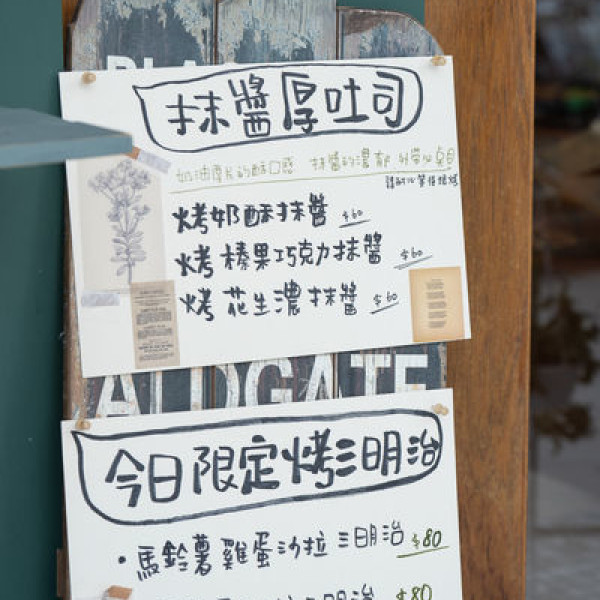 抹醬厚吐司
奶油厚片的酥口感 抹醬的濃郁
請耐心等待燒烤
烤奶酥抹醬 $60
烤榛果巧克力抹醬 $60
烤花生濃抹醬 $60
ALDGATE
今日限定烤三明治
·馬鈴薯雞蛋沙拉三明治 $80
三明治 $80